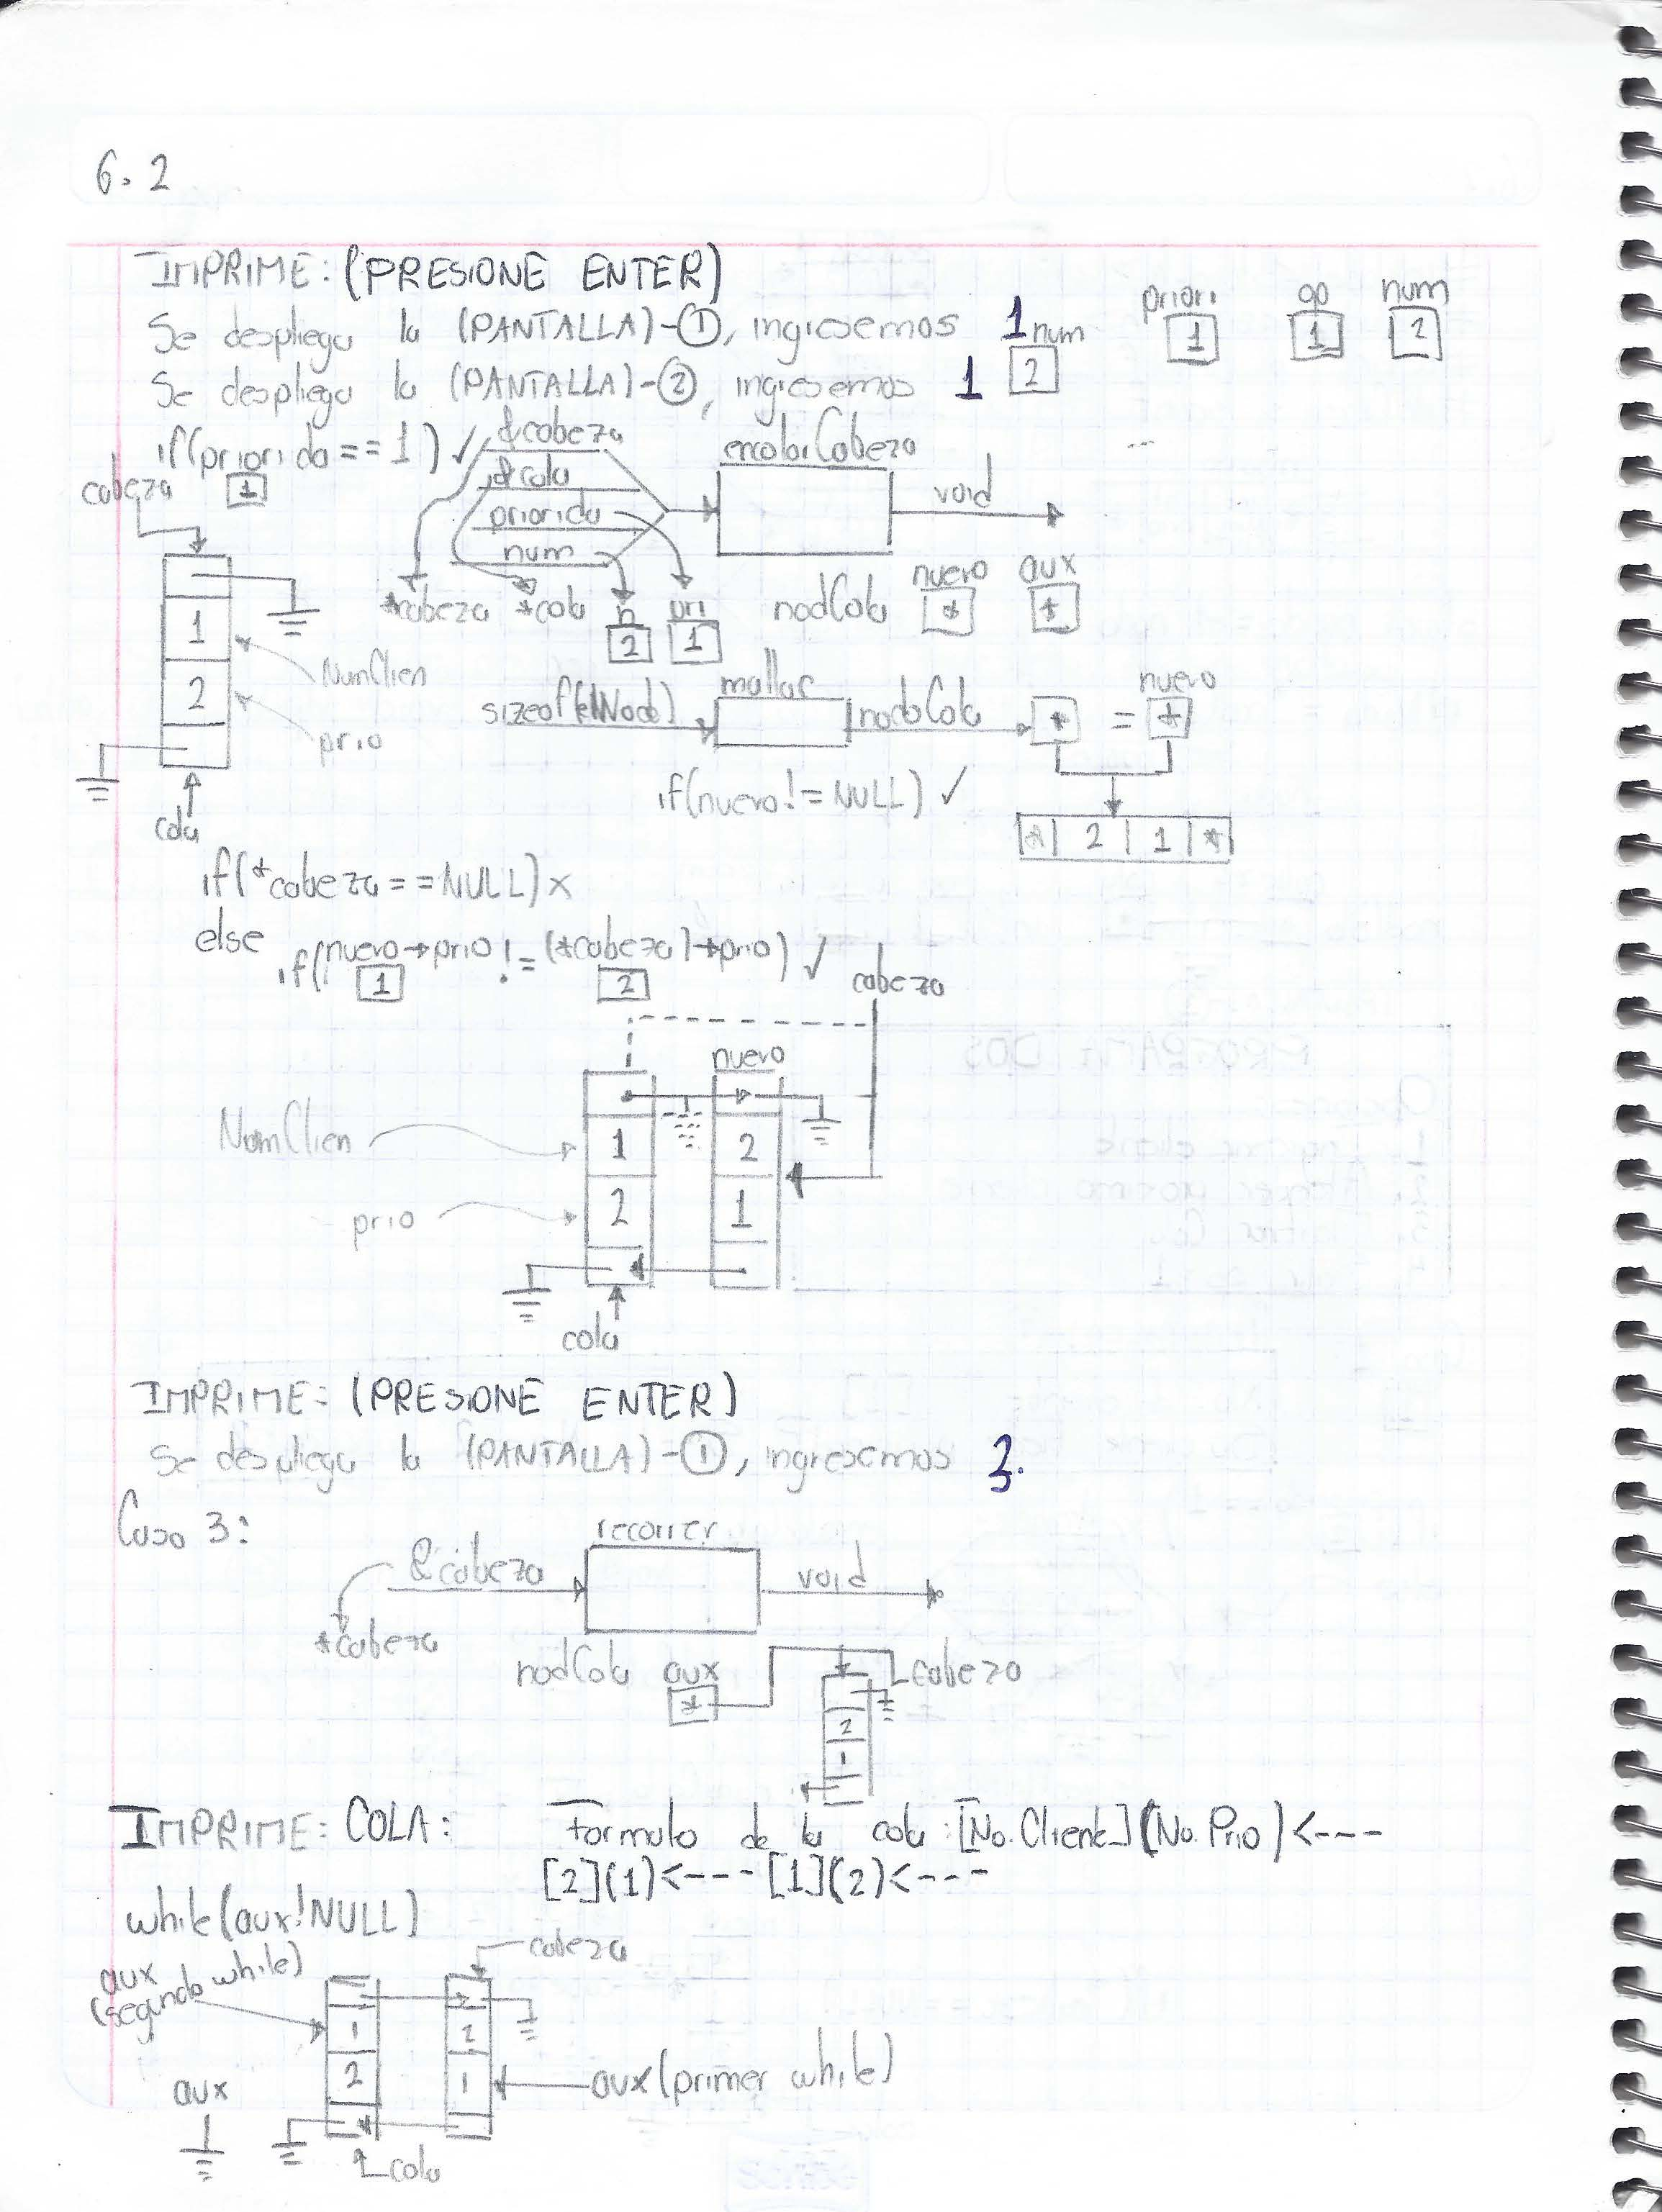 6.2
IMPRIME: (PRESIONE ENTER)
Se despliega la (PANTALLA)-①, ingresemos 1
num
2
priori
1
op
1
num
2
Se despliega la (PANTALLA)-②, ingresemos 1
if(priorida==1) ✓
1
cabeza
&cabeza
&cola
priorida
num
encolarCabeza
void
*cabeza *cola
n
2
pri
1
nodCola
nuevo
*
aux
*
1
2
NumClien
prio
cola
sizeof(elNodo)
mallac
nodoCola
* =
nuevo
*
if(nuevo!=NULL) ✓
* | 2 | 1 | *
if(*cabeza==NULL) x
else
if(nuevo→prio != (*cabeza)→prio) ✓
1
2
cabeza
nuevo
NumClien
1
2
prio
2
1
cola
IMPRIME: (PRESIONE ENTER)
Se despliega la (PANTALLA)-①, ingresemos 3.
Caso 3:
recorrer
&cabeza
void
*cabeza
nodCola
aux
*
cabeza
2
1
IMPRIME: COLA: Formula de la cola: [No.Cliente](No.Prio)<---
[2](1)<---[1](2)<---
while(aux!NULL)
aux
(segundo while)
cabeza
1
2
2
1
aux
aux(primer while)
cola